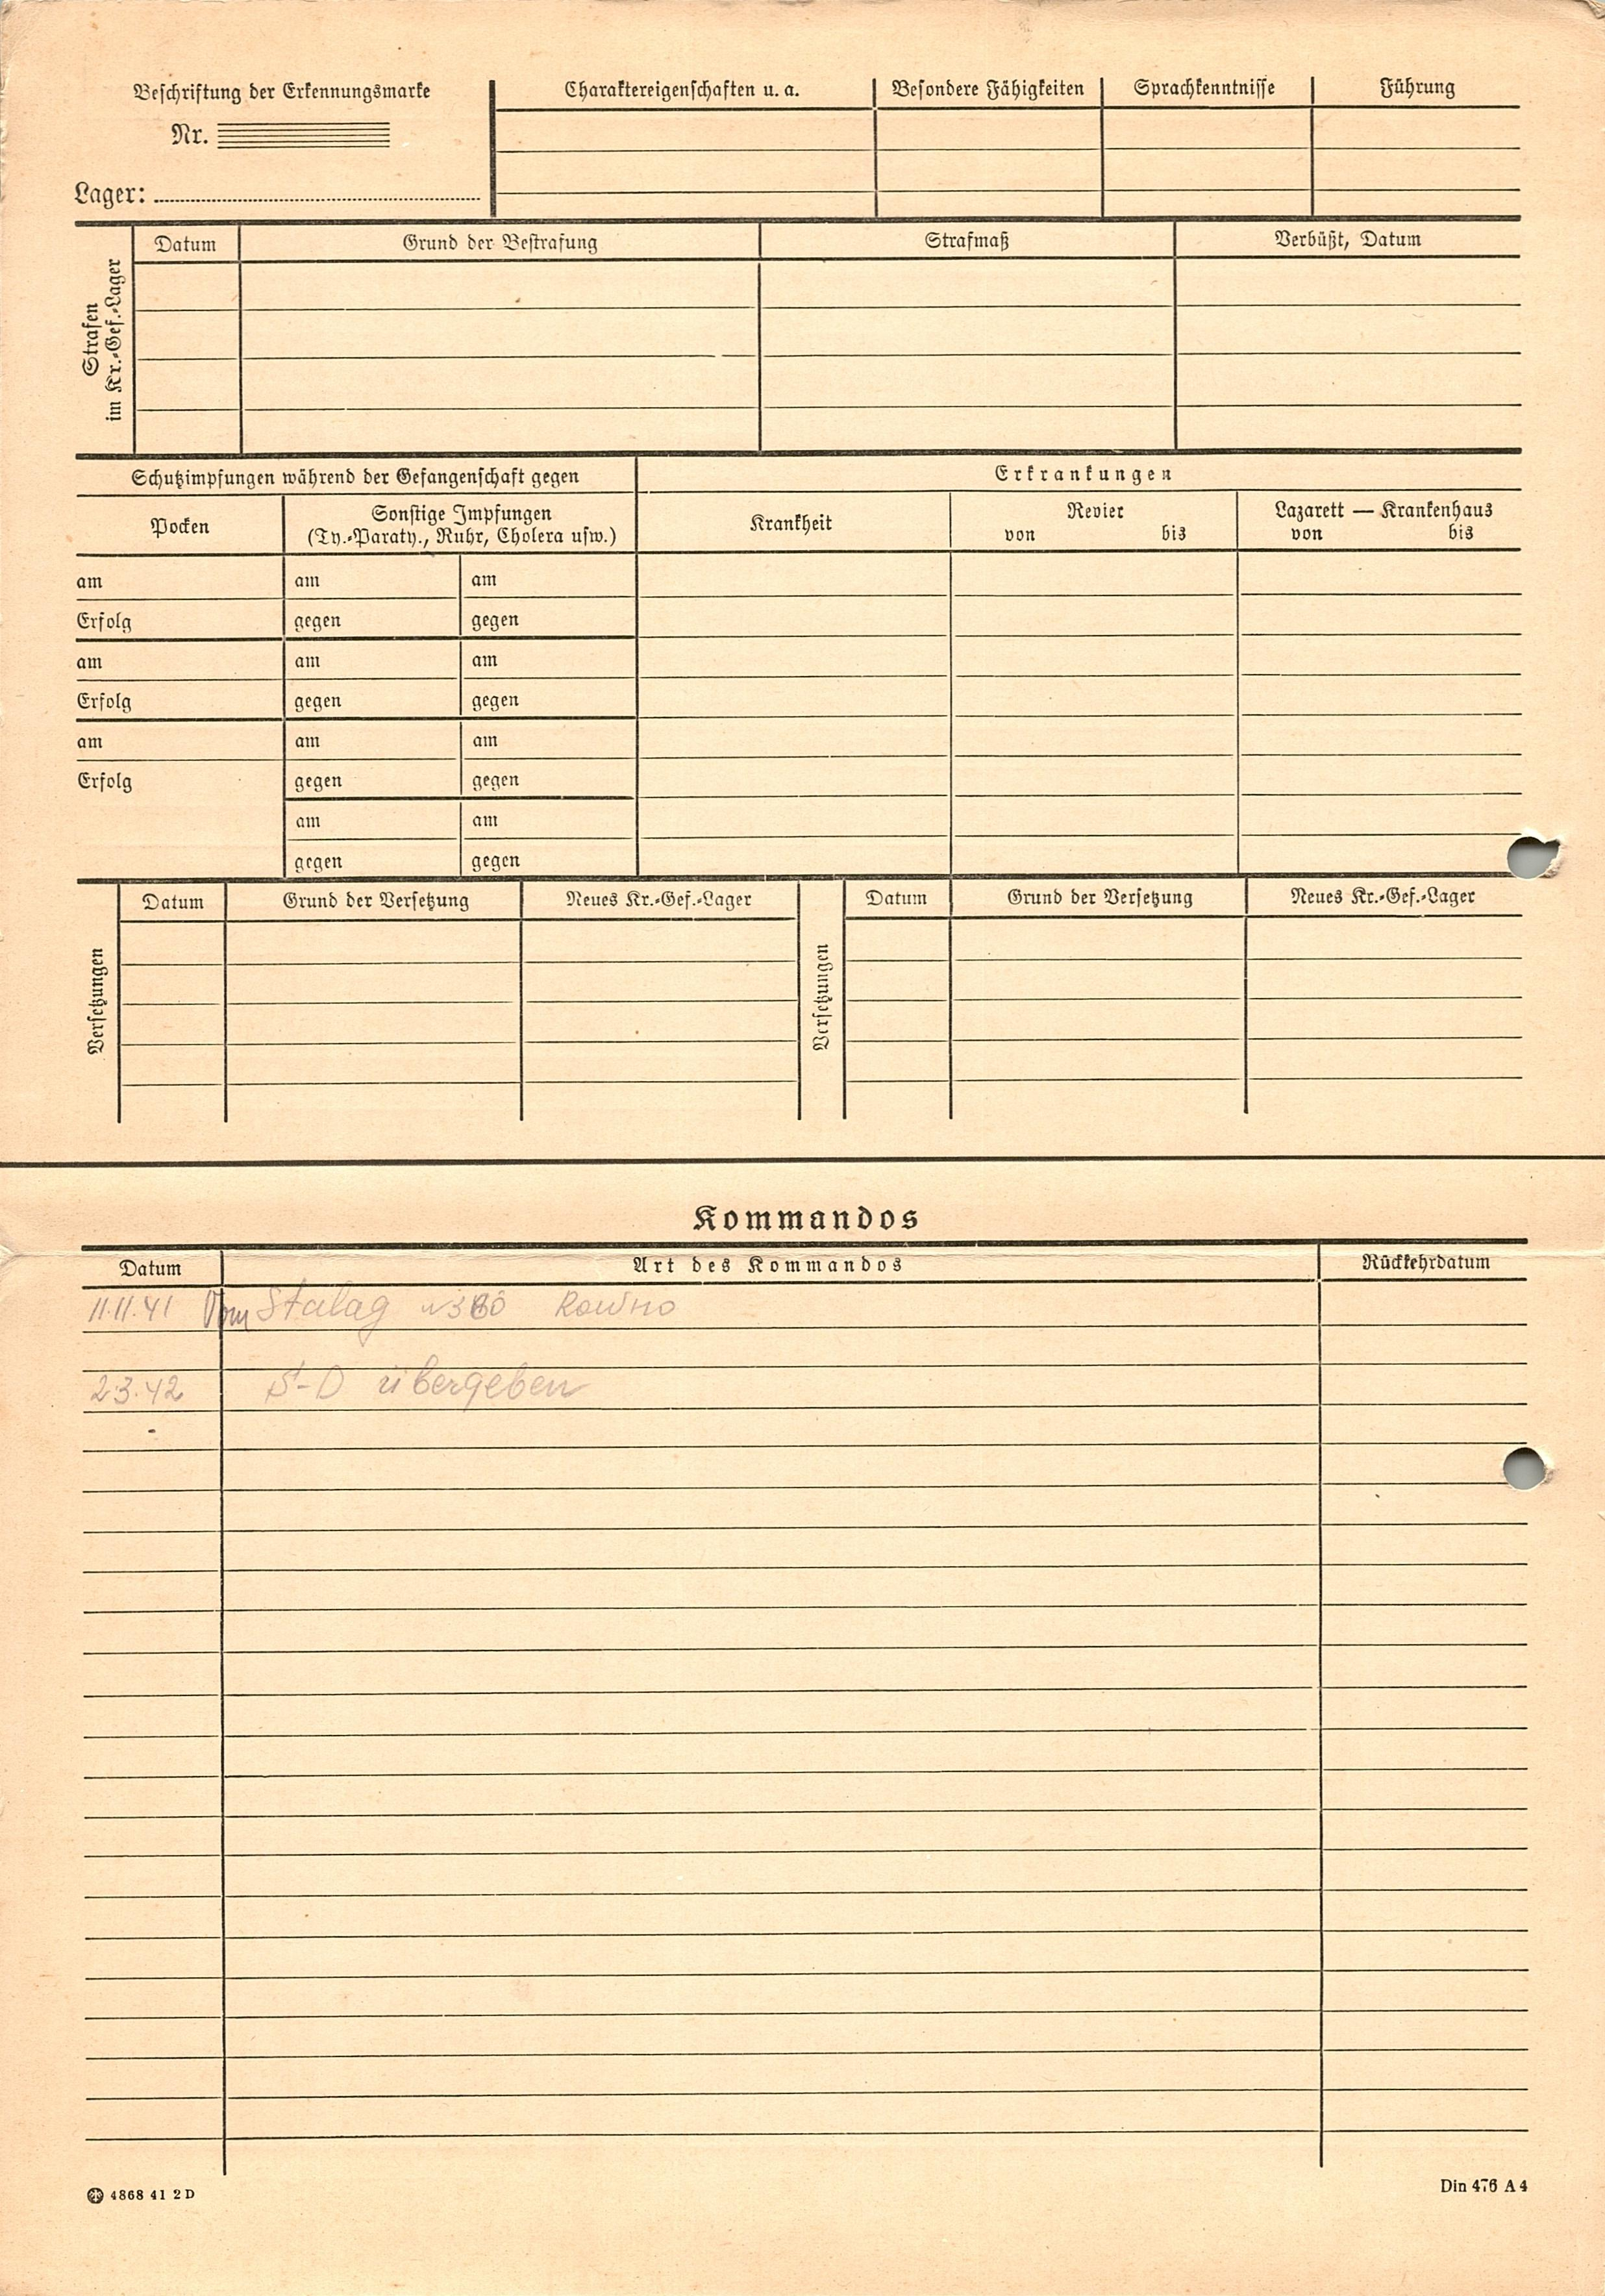 Beschriftung der Erkennungsmarke
Nr.
Lager:
Charaktereigenschaften u. a. Besondere Fähigkeiten Sprachkenntnisse Führung
Strafen
im Kr.-Gef.-Lager
Datum Grund der Bestrafung Strafmaß Verbüßt, Datum
Schutzimpfungen während der Gefangenschaft gegen
Erkrankungen
Pocken
Sonstige Impfungen
(Ty.-Paraty., Ruhr, Cholera usw.)
Krankheit
Revier
von bis
Lazarett — Krankenhaus
von bis
am am am
Erfolg gegen gegen
am am am
Erfolg gegen gegen
am am am
Erfolg gegen gegen
am am
gegen gegen
Versetzungen
Datum Grund der Versetzung Neues Kr.-Gef.-Lager
Versetzungen
Datum Grund der Versetzung Neues Kr.-Gef.-Lager
Kommandos
Datum Art des Kommandos Rückkehrdatum
11.11.41 Vom Stalag Rowno
2.3.42 S-D übergeben
4868 41 2 D
Din 476 A 4